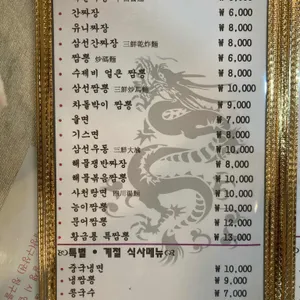 ₩ 5,000
간짜장 ₩ 6,000
유니짜장 ₩ 8,000
삼선간짜장 三鮮乾炸麵 ₩ 8,000
짬뽕 炒碼麵 ₩ 6,000
수제비 얼큰 짬뽕 ₩ 8,000
삼선짬뽕 三鮮炒馬麵 ₩ 10,000
차돌박이 짬뽕 ₩ 9,000
울면 ₩ 7,000
기스면 ₩ 8,000
삼선우동 三鮮大滷 ₩ 10,000
해물쟁반짜장 ₩ 8,000
해물볶음짬뽕 ₩ 10,000
사천탕면 四川湯麵 ₩ 10,000
능이짬뽕 ₩ 10,000
문어짬뽕 ₩ 12,000
황금룡 특짬뽕 ₩ 13,000
특별 • 계절 식사메뉴
중국냉면 ₩ 10,000
냉짬뽕 ₩ 9,000
콩국수 ₩ 7,000